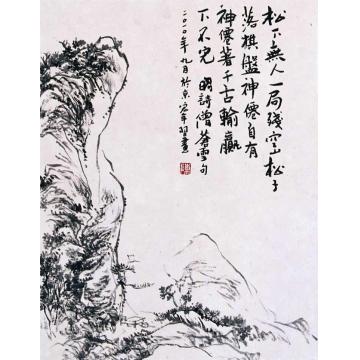 松下無人一局殘空山松子
落棋盤神僊自有
神僊著千古輸贏
下不完 明詩僧蒼雪句
二〇一〇年九月於京